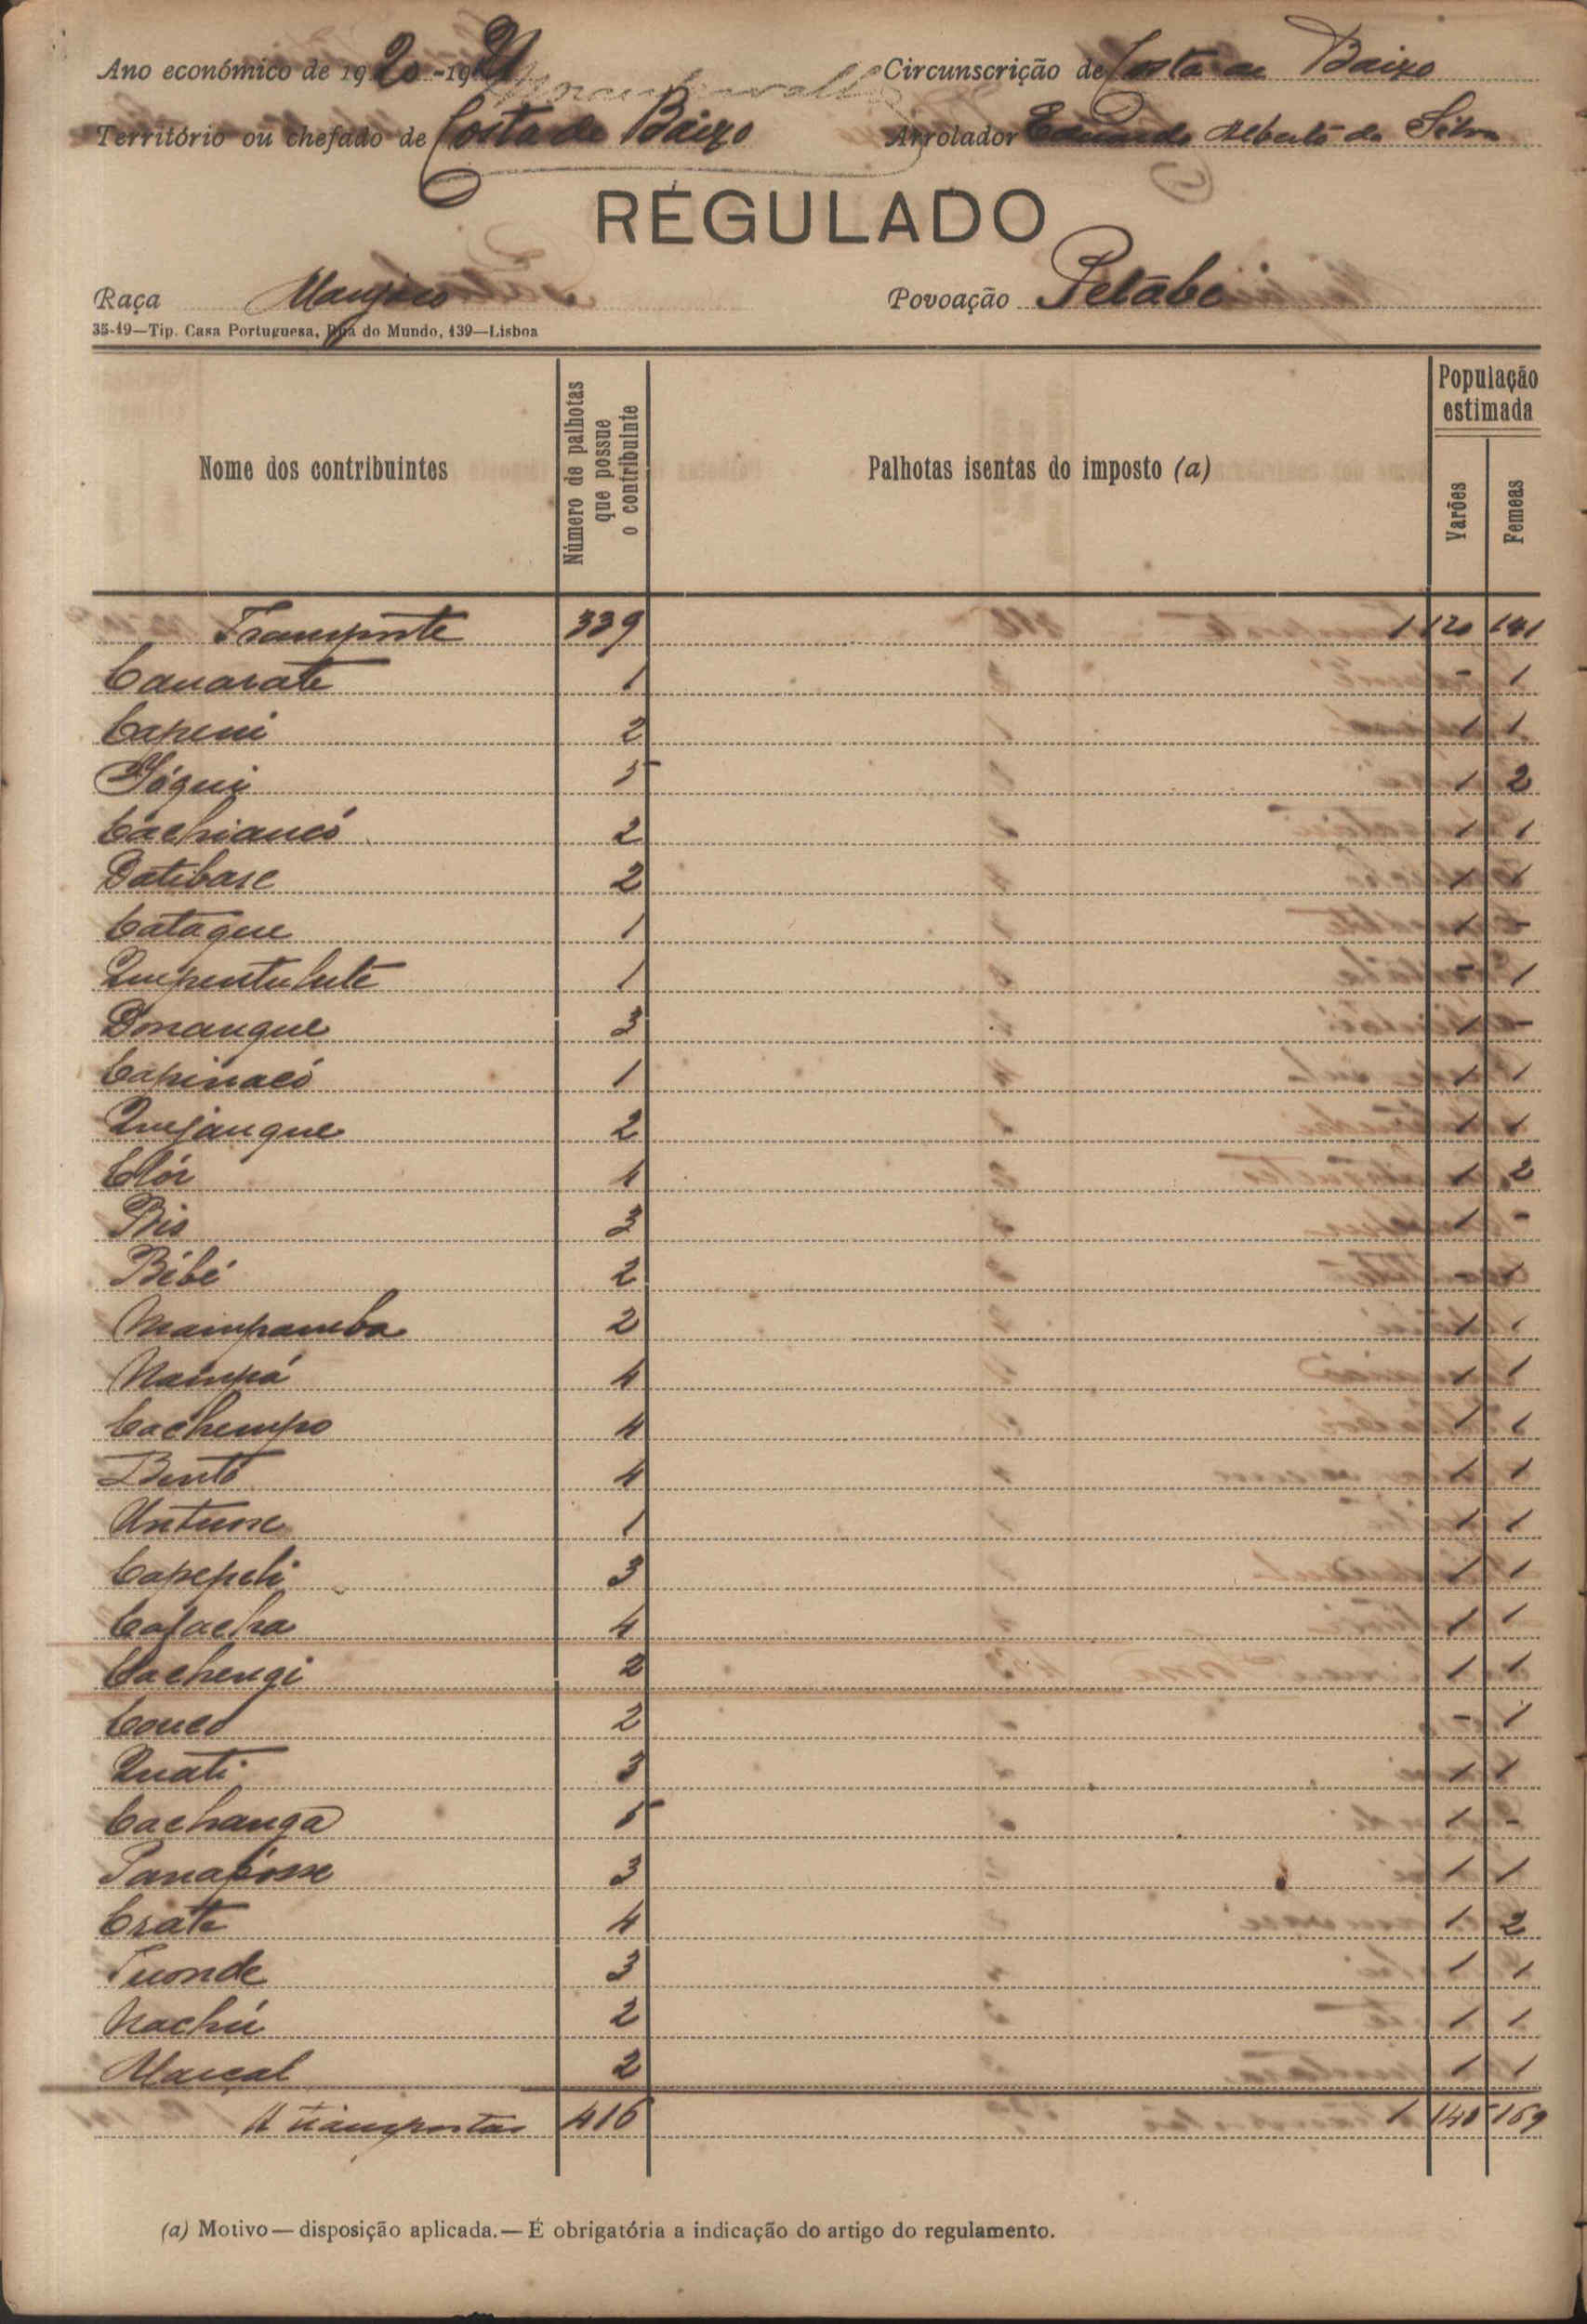 Ano económico de 1920-1921 Circunscrição de Costa de Baixo
Território ou chefado de Costa de Baixo Arrolador Eduardo Alberto da Silva
REGULADO
Raça Manjaco Povoação Petabe
35-19—Tip. Casa Portuguesa, Rua do Mundo, 139—Lisboa
Nome dos contribuintes Número de palhotas que possue o contribuinte Palhotas isentas do imposto (a) População estimada Varões Femeas
Transporte 339 1 120 141
Canarate 1 - 1
Capeni 2 1 1
Jóqui 5 1 2
Cachiancó 2 1 1
Datibase 2 1 1
Cataque 1 1 -
1 - 1
Bonanque 3 1 -
Capinacó 1 1 1
Quejanque 2 1 1
Clór 4 1 2
3 1 -
Bébé 2 - 1
Mampamba 2 1 1
Nampá 4 1 1
Cachempo 4 1 1
Bentó 4 1 1
Untunse 1 1 1
Capepeli 3 1 1
Cajacha 4 1 1
Cachengi 2 1 1
Couco 2 - 1
Quati 3 1 1
Cachanga 5 1 -
3 1 1
Crate 4 1 2
Tuonde 3 1 1
Nachú 2 1 1
Marçal 2 1 1
A transportar 416 1 145 169
(a) Motivo—disposição aplicada.—É obrigatória a indicação do artigo do regulamento.